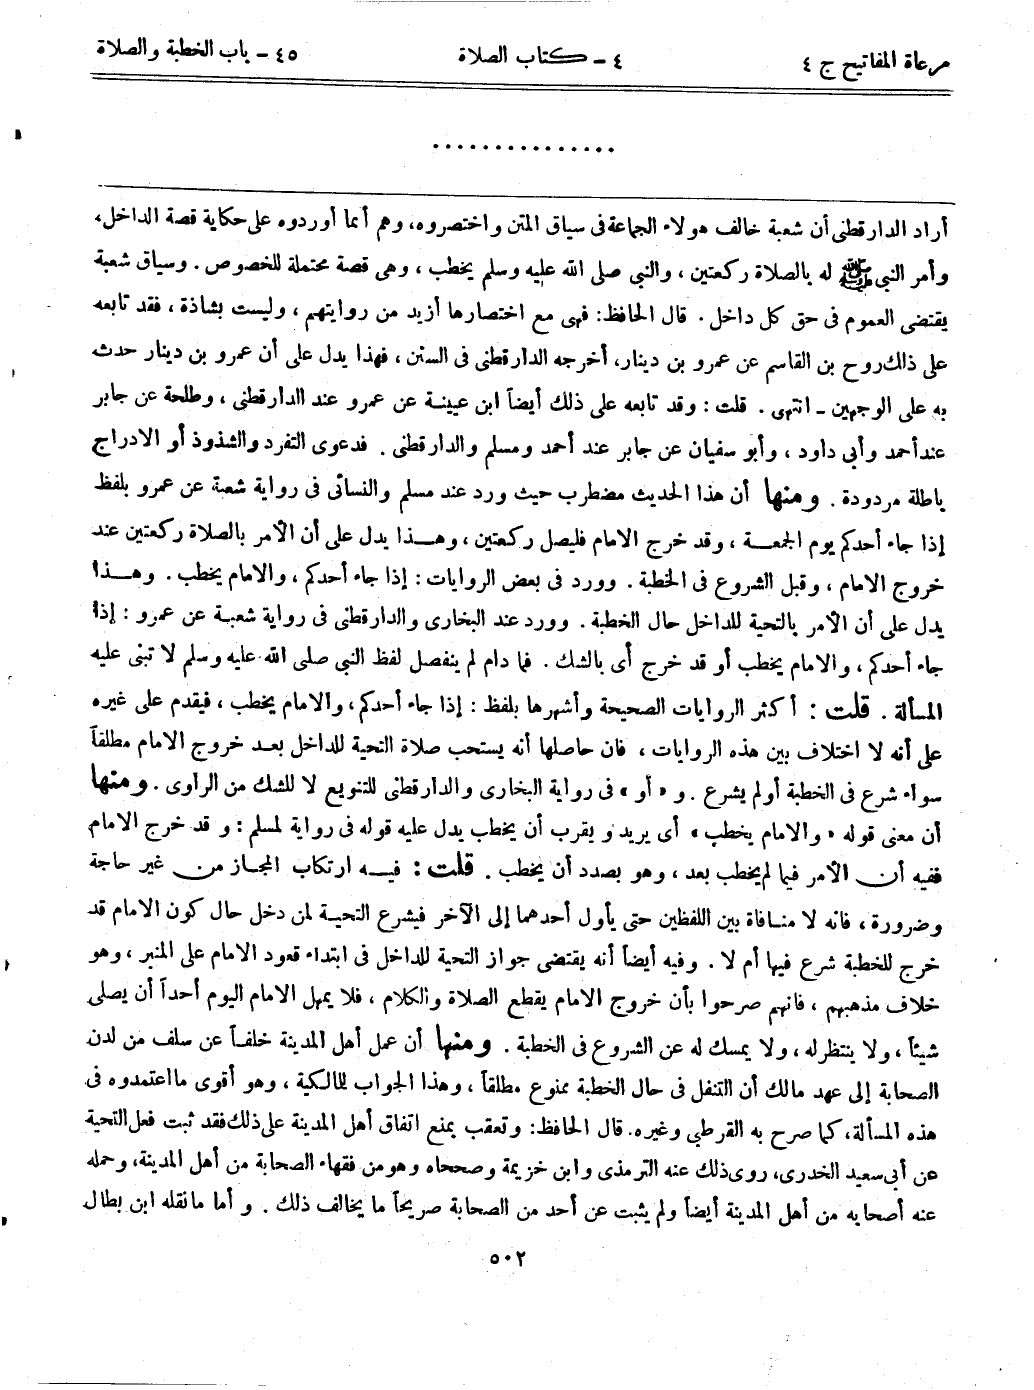 مرعاة المفاتيح ج ٤
٤ – كتاب الصلاة
٤٥ – باب الخطبة والصلاة
...............
أراد الدارقطنى أن شعبة خالف هولاء الجماعة فى سياق المتن واختصروه، وهم أنما أوردوه على حكاية قصة الداخل،
وأمر النبى ﷺ له بالصلاة ركعتين ، والنبي صلى الله عليه وسلم يخطب ، وهى قصة محتملة للخصوص . وسياق شعبة
يقتضى العموم فى حق كل داخل . قال الحافظ: فهى مع اختصارها أزيد من روايتهم ، وليست بشاذة ، فقد تابعه
على ذلك روح بن القاسم عن عمرو بن دينار، أخرجه الدارقطنى فى السنن ، فهذا يدل على أن عمرو بن دينار حدث
به على الوجهين – انتهى . قلت : وقد تابعه على ذلك أيضاً ابن عيينة عن عمرو عند الدارقطنى ، وطلحة عن جابر
عند أحمد وأبى داود ، وأبو سفيان عن جابر عند أحمد ومسلم والدارقطنى . فدعوى التفرد والشذوذ أو الادراج
باطلة مردودة . ومنها أن هذا الحديث مضطرب حيث ورد عند مسلم والنسائى فى رواية شعبة عن عمرو بلفظ
إذا جاء أحدكم يوم الجمعة ، وقد خرج الامام فليصل ركعتين ، وهذا يدل على أن الأمر بالصلاة ركعتين عند
خروج الامام ، وقبل الشروع فى الخطبة . وورد فى بعض الروايات : إذا جاء أحدكم ، والامام يخطب . وهذا
يدل على أن الأمر بالتحية للداخل حال الخطبة . وورد عند البخارى والدارقطنى فى رواية شعبة عن عمرو : إذا
جاء أحدكم ، والامام يخطب أو قد خرج أى بالشك . فما دام لم ينفصل لفظ النبى صلى الله عليه وسلم لا تبنى عليه
المسألة . قلت : أكثر الروايات الصحيحة وأشهرها بلفظ : إذا جاء أحدكم، والامام يخطب ، فيقدم على غيره
على أنه لا اختلاف بين هذه الروايات ، فان حاصلها أنه يستحب صلاة التحية للداخل بعد خروج الامام مطلقاً
سواء شرع فى الخطبة أولم يشرع . و « أو » فى رواية البخارى والدارقطنى للتنويع لا للشك من الراوى . ومنها
أن معنى قوله « والامام يخطب » أى يريد ويقرب أن يخطب يدل عليه قوله فى رواية لمسلم : وقد خرج الامام
ففيه أن الأمر فيما لم يخطب بعد ، وهو بصدد أن يخطب . قلت : فيه ارتكاب المجاز من غير حاجة
وضرورة ، فانه لا منافاة بين اللفظين حتى يأول أحدهما إلى الآخر فيشرع التحية لمن دخل حال كون الامام قد
خرج للخطبة شرع فيها أم لا . وفيه أيضاً أنه يقتضى جواز التحية للداخل فى ابتداء قعود الامام على المنبر ، وهو
خلاف مذهبهم ، فانهم صرحوا بأن خروج الامام يقطع الصلاة والكلام ، فلا يمهل الامام اليوم أحداً أن يصلى
شيئاً ، ولا ينتظر له ، ولا يمسك له عن الشروع فى الخطبة . ومنها أن عمل أهل المدينة خلفاً عن سلف من لدن
الصحابة إلى عهد مالك أن التنفل فى حال الخطبة ممنوع مطلقاً ، وهذا الجواب للمالكية ، وهو أقوى ما اعتمدوه فى
هذه المسألة، كما صرح به القرطبى وغيره. قال الحافظ: وتعقب بمنع اتفاق أهل المدينة على ذلك فقد ثبت فعل التحية
عن أبى سعيد الخدرى، روى ذلك عنه الترمذى وابن خزيمة وصححاه وهو من فقهاء الصحابة من أهل المدينة، وحمله
عنه أصحابه من أهل المدينة أيضاً ولم يثبت عن أحد من الصحابة صريحاً ما يخالف ذلك . وأما ما نقله ابن بطال
٥٠٢